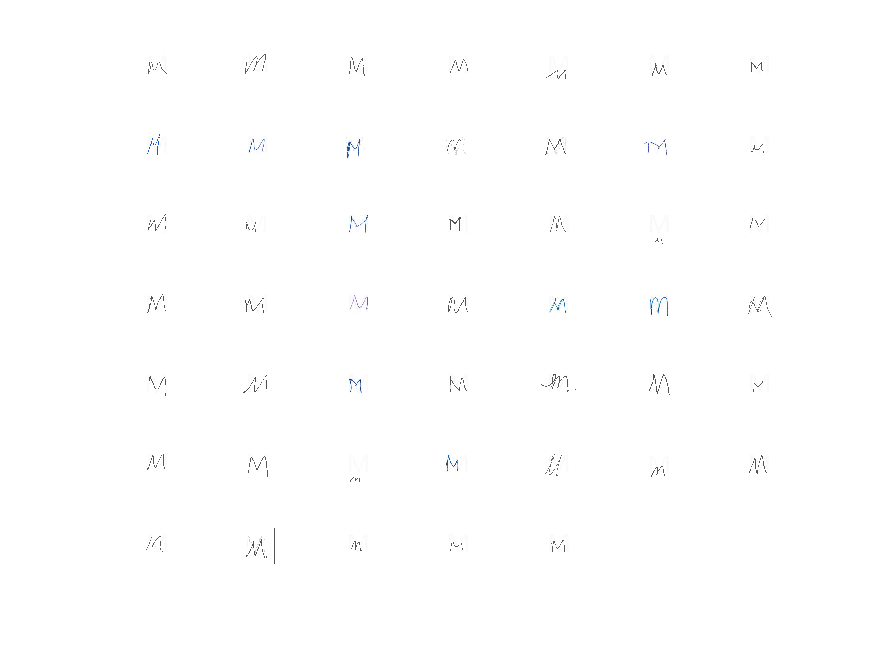 M M M M M M M
M M M M M M M
M M M M M M M
M M M M M M M
M M M M M M M
M M M M M M M
M M M M M